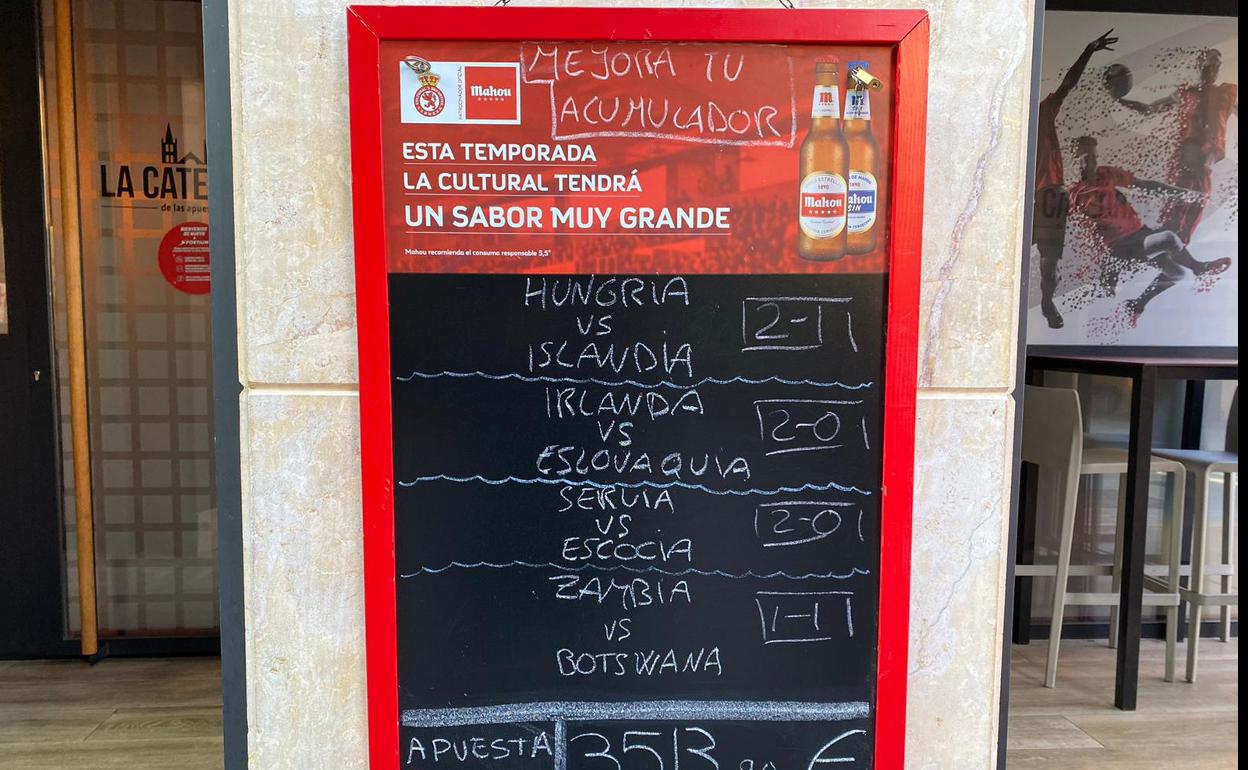 MEJORA TU
ACUMULADOR
PATROCINADOR OFICIAL
Mahou
ESTA TEMPORADA
LA CULTURAL TENDRÁ
UN SABOR MUY GRANDE
Mahou recomienda el consumo responsable 5,5°
Mahou
SIN
LA CATE
de las apues
BIENVENIDO
DE NUEVO
A PORTIUM
HUNGRIA
VS
ISLANDIA
2-1
IRLANDA
VS
ESLOVAQUIA
2-0
SERVIA
VS
ESCOCIA
2-0
ZAMBIA
VS
BOTSWANA
1-1
APUESTA